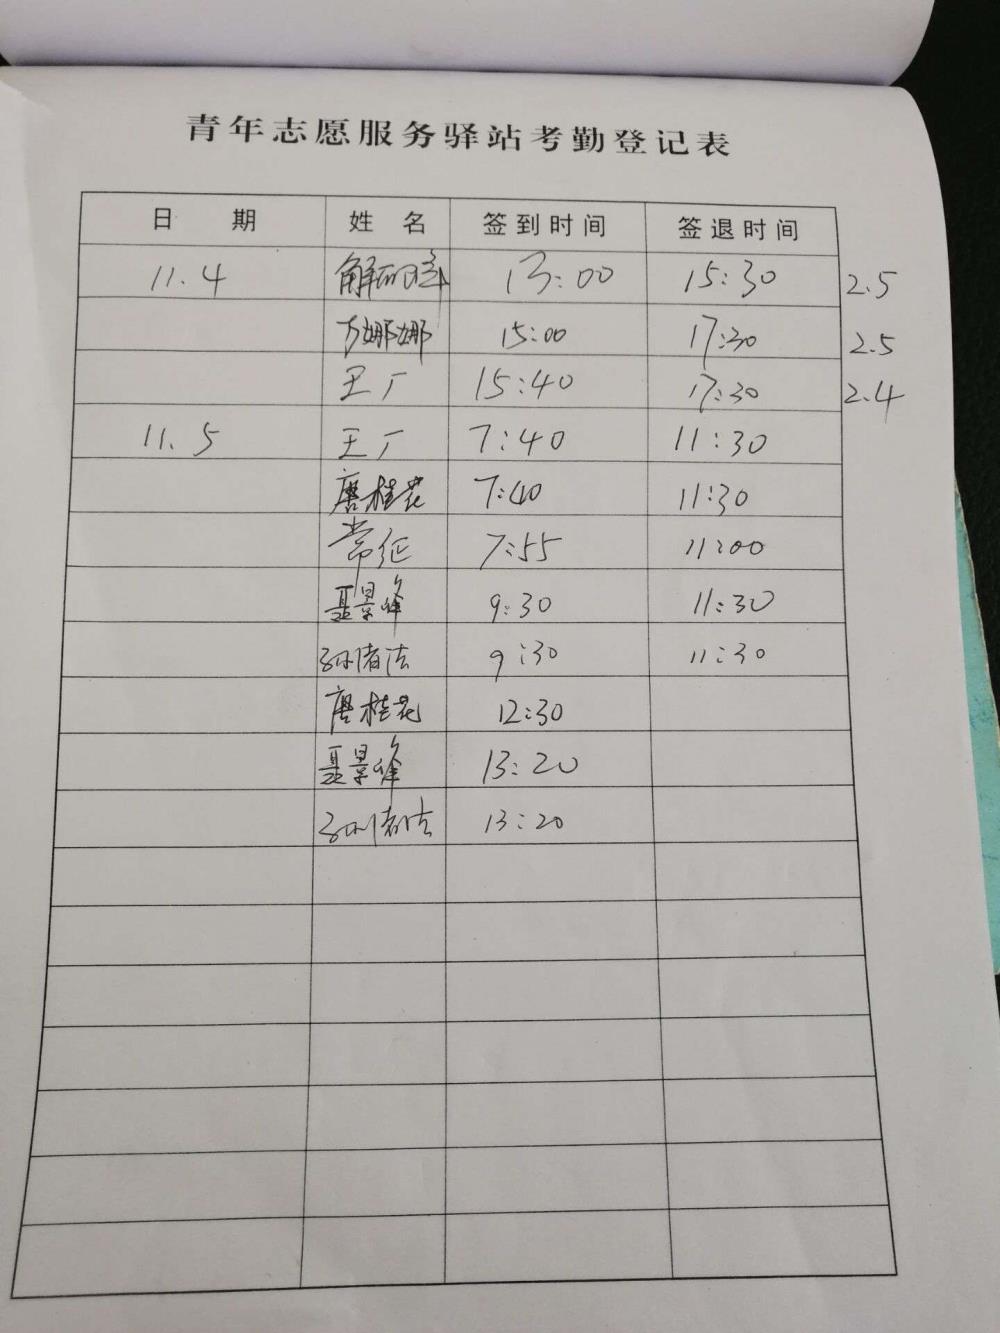 青年志愿服务驿站考勤登记表
日期 姓名 签到时间 签退时间
11.4 解 13:00 15:30 2.5
方娜娜 15:00 17:30 2.5
王厂 15:40 17:30 2.4
11.5 王厂 7:40 11:30
唐桂花 7:40 11:30
常征 7:55 11:00
聂景峰 9:30 11:30
孙 法 9:30 11:30
唐桂花 12:30
聂景峰 13:20
孙 法 13:20